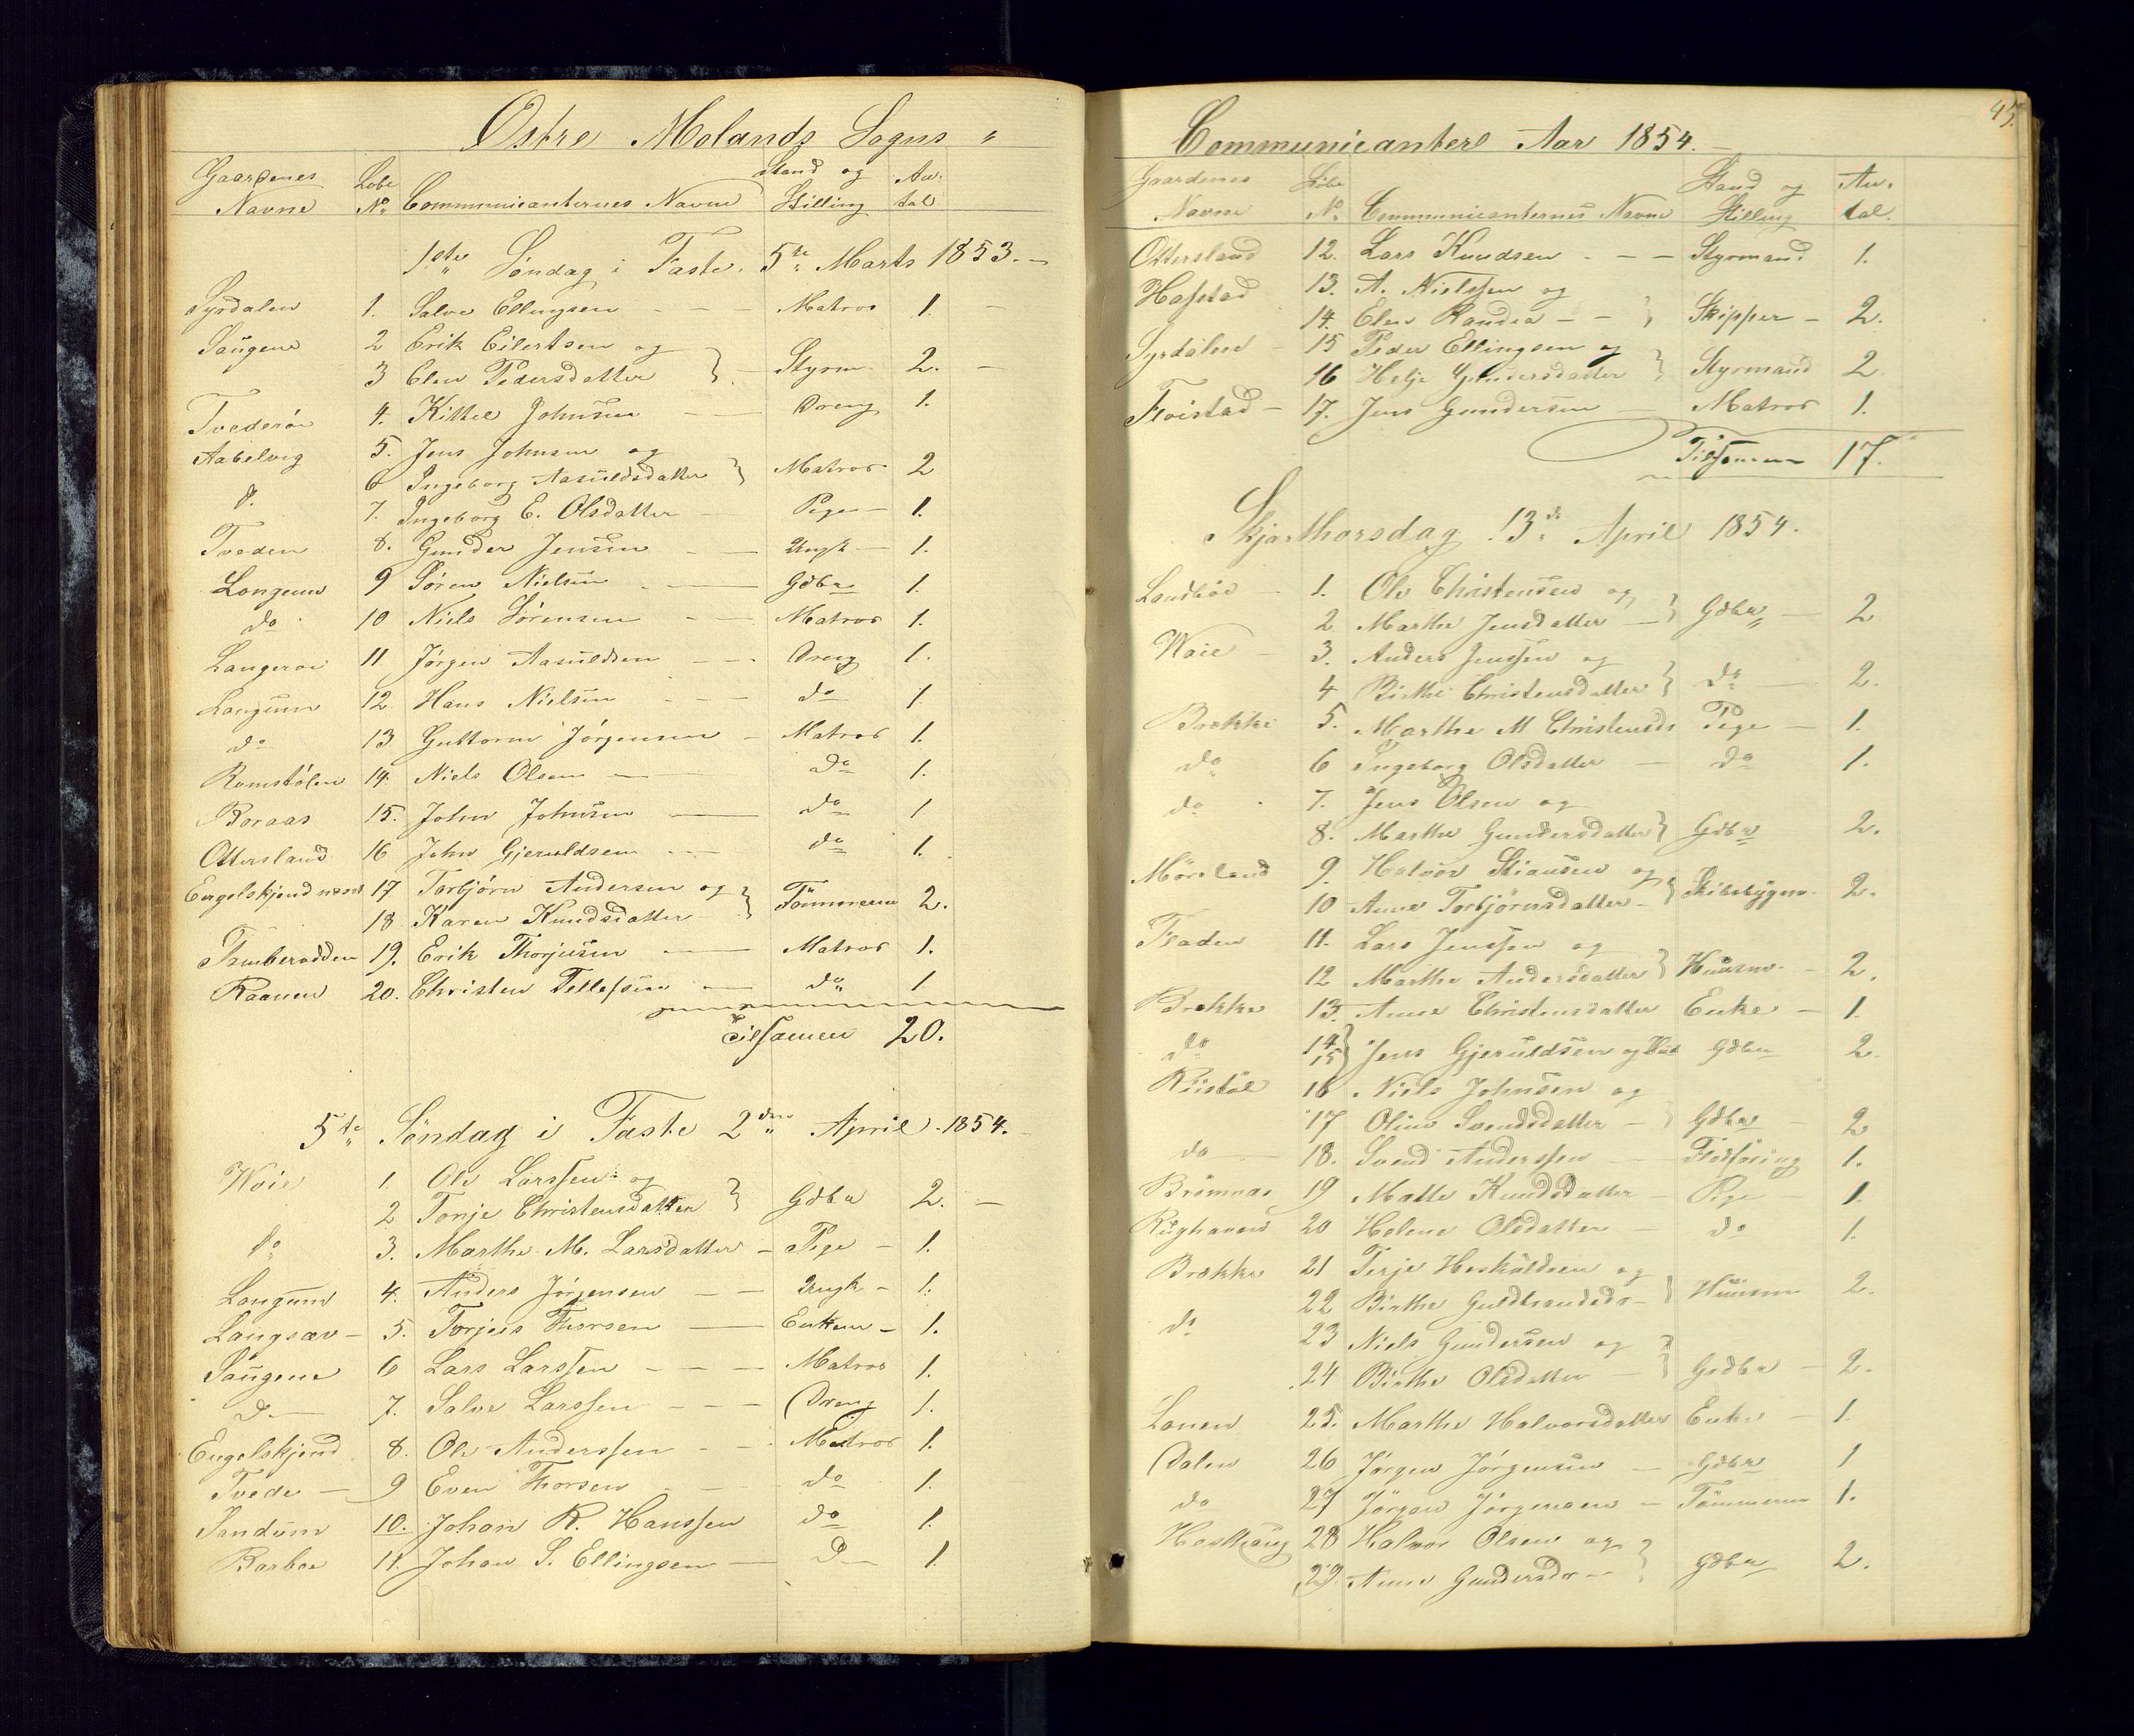 Østre Molands Sogns "
Gaardenes Løbe Stand og An-
Navne No Communicanternes Navne Stilling tal
1ste Søndag i Faste. 5te Marts 1853.
Syrdalen 1. Salve Ellingsen Matros 1.
Saugene 2 Erik Eilertsen og
3 Elen Pedersdatter } Styrm. 2.
Tvederøe 4. Kittel Johnsen Dreng 1.
Aabelvig 5. Jens Johnsen og
6 Ingeborg Aasuldsdatter } Matros 2
do 7. Ingeborg E. Olsdatter Pige 1.
Tveden 8. Gunder Jensen Ungk 1.
Longum 9 Søren Nielsen Gdbr 1.
do 10 Niels Sørensen Matros 1.
Langeroe 11 Jørgen Aasuldsen Dreng 1.
Longum 12 Hans Nielsen do 1.
do 13 Guttorm Jørgensen Matros 1.
Romstølen 14. Niels Olsen do 1.
Boraas 15. John Johnsen do 1
Ottersland 16 John Gjeruldsen do 1.
Engelskjend næset 17 Torbjørn Andersen og
18 Karen Knudsdatter } Tømmerm 2.
Tamberodden 19. Erik Thorjusen Matros 1.
Raanen 20. Christen Tellefsen do 1
Tilsamen 20.
5te Søndag i Faste 2den April 1854.
Woie 1. Ole Larssen og
2 Tonje Christensdatter } Gdbr 2.
do 3. Marthe M. Larsdatter Pige 1.
Longum 4. Anders Jørgensen Ungk 1.
Langsæv 5. Torjus Thorsen Enkem 1.
Saugene 6 Lars Larssen Matros 1.
do 7. Salve Larssen Dreng 1.
Engelskjend 8. Ole Anderssen Matros 1.
Tvede 9 Even Thorsen do 1.
Sandum 10. Johan R. Hanssen do 1.
Barboe 11. Johan S. Ellingsen do 1.
45.
Communicantere Aar 1854.
Gaardenes Løbe Stand og An-
Navne No Communicanternes Navne Stilling tal.
Ottersland 12. Lars Knudsen Styrmand 1.
Hafstad 13. A. Nielssen og
14. Elen Randea } Skipper 2.
Syrdalen 15 Peder Ellingsen og
16 Helje Gundersdatter } Styrmand 2
Floistad 17. Jens Gundersen Matros 1.
Tilsamen 17.
Skjærthorsdag 13de April 1854.
Landbøe 1. Ole Christensen og
2. Marthe Jensdatter } Gdbr 2
Woie 3. Anders Jenssen og
4 Birthe Christensdatter } do 2.
Brekke 5. Marthe M Christensdr Pige 1.
do 6 Ingeborg Olsdatter do 1.
do 7. Jens Olsen og
8. Marthe Gundersdatter } Gdbr 2.
Møreland 9. Halvor Stiansen og
10 Anne Torbjørnsdatter } Skibsbygm. 2.
Fladen 11. Lars Jenssen og
12 Marthe Andersdatter } Huusm. 2.
Brekke 13. Anne Christensdatter Enke 1.
do 14 15 } Jens Gjeruldsen og Gdbr 2.
Riistøl 16 Niels Johnsen og
17 Oline Svendsdatter Gdbr 2
do 18. Svend Anderssen Fødføring 1.
Brømnas 19 Malle Knudsdatter Pige 1.
Rughaven 20 Helene Olsdatter do 1.
Brekke 21 Terje Hoskuldsen og
22 Birthe Guldbrandsdr } Huusm 2.
do 23 Niels Gundersen og
24 Birthe Olsdatter } Gadbr 2.
Lonen 25. Marthe Halvorsdatter Enke 1.
Dalen 26 Jørgen Jørgensen Gdbr 1
do 27 Jørgen Jørgensen Tømmerm 1.
28 Halvor Olsen og
29. Anne Gundersdr } Gdbr 2.